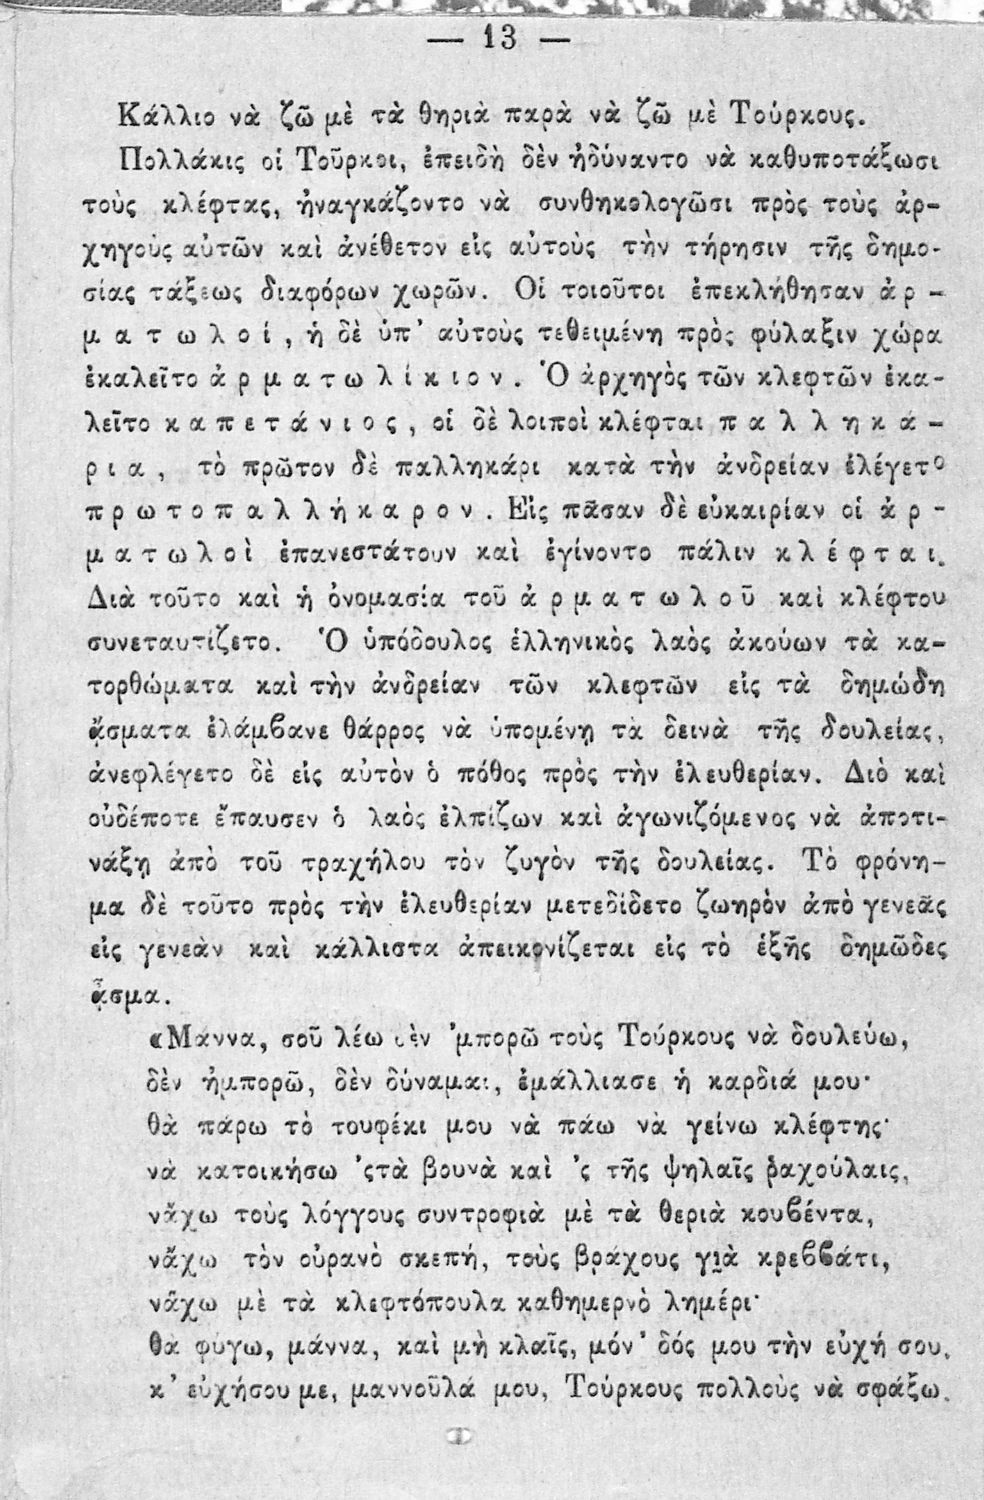 — 13 —
Κάλλιο νὰ ζῶ μὲ τὰ θηριὰ παρὰ νὰ ζῶ μὲ Τούρκους.
Πολλάκις οἱ Τοῦρκοι, ἐπειδὴ δὲν ἠδύναντο νὰ καθυποτάξωσι
τοὺς κλέφτας, ἠναγκάζοντο νὰ συνθηκολογῶσι πρὸς τοὺς ἀρ-
χηγοὺς αὐτῶν καὶ ἀνέθετον εἰς αὐτοὺς τὴν τήρησιν τῆς δημο-
σίας τάξεως διαφόρων χωρῶν. Οἱ τοιοῦτοι ἐπεκλήθησαν ἀρ-
ματωλοί, ἡ δὲ ὑπ' αὐτοὺς τεθειμένη πρὸς φύλαξιν χώρα
ἐκαλεῖτο ἀρματωλίκιον. Ὁ ἀρχηγὸς τῶν κλεφτῶν ἐκα-
λεῖτο καπετάνιος, οἱ δὲ λοιποὶ κλέφται παλληκά-
ρια, τὸ πρῶτον δὲ παλληκάρι κατὰ τὴν ἀνδρείαν ἐλέγετο
πρωτοπαλλήκαρον. Εἰς πᾶσαν δὲ εὐκαιρίαν οἱ ἀρ-
ματωλοὶ ἐπανεστάτουν καὶ ἐγίνοντο πάλιν κλέφται.
Διὰ τοῦτο καὶ ἡ ὀνομασία τοῦ ἀρματωλοῦ καὶ κλέφτου
συνεταυτίζετο. Ὁ ὑπόδουλος ἑλληνικὸς λαὸς ἀκούων τὰ κα-
τορθώματα καὶ τὴν ἀνδρείαν τῶν κλεφτῶν εἰς τὰ δημώδη
ᾄσματα ἐλάμβανε θάρρος νὰ ὑπομένῃ τὰ δεινὰ τῆς δουλείας,
ἀνεφλέγετο δὲ εἰς αὐτὸν ὁ πόθος πρὸς τὴν ἐλευθερίαν. Διὸ καὶ
οὐδέποτε ἔπαυσεν ὁ λαὸς ἐλπίζων καὶ ἀγωνιζόμενος νὰ ἀποτι-
νάξῃ ἀπὸ τοῦ τραχήλου τὸν ζυγὸν τῆς δουλείας. Τὸ φρόνη-
μα δὲ τοῦτο πρὸς τὴν ἐλευθερίαν μετεδίδετο ζωηρὸν ἀπὸ γενεᾶς
εἰς γενεὰν καὶ κάλλιστα ἀπεικονίζεται εἰς τὸ ἑξῆς δημῶδες
ᾆσμα.
«Μάννα, σοῦ λέω δὲν 'μπορῶ τοὺς Τούρκους νὰ δουλεύω,
δὲν ἠμπορῶ, δὲν δύναμαι, ἐμάλλιασε ἡ καρδιά μου·
θὰ πάρω τὸ τουφέκι μου νὰ πάω νὰ γείνω κλέφτης·
νὰ κατοικήσω 'ςτὰ βουνὰ καὶ 'ς τῆς ψηλαῖς ῥαχούλαις,
νἄχω τοὺς λόγγους συντροφιὰ μὲ τὰ θεριὰ κουβέντα,
νἄχω τὸν οὐρανὸ σκεπή, τοὺς βράχους γιὰ κρεββάτι,
νἄχω μὲ τὰ κλεφτόπουλα καθημερνὸ λημέρι·
θὰ φύγω, μάννα, καὶ μὴ κλαῖς, μόν' δός μου τὴν εὐχή σου,
κ' εὐχήσου με, μαννοῦλά μου, Τούρκους πολλοὺς νὰ σφάξω.